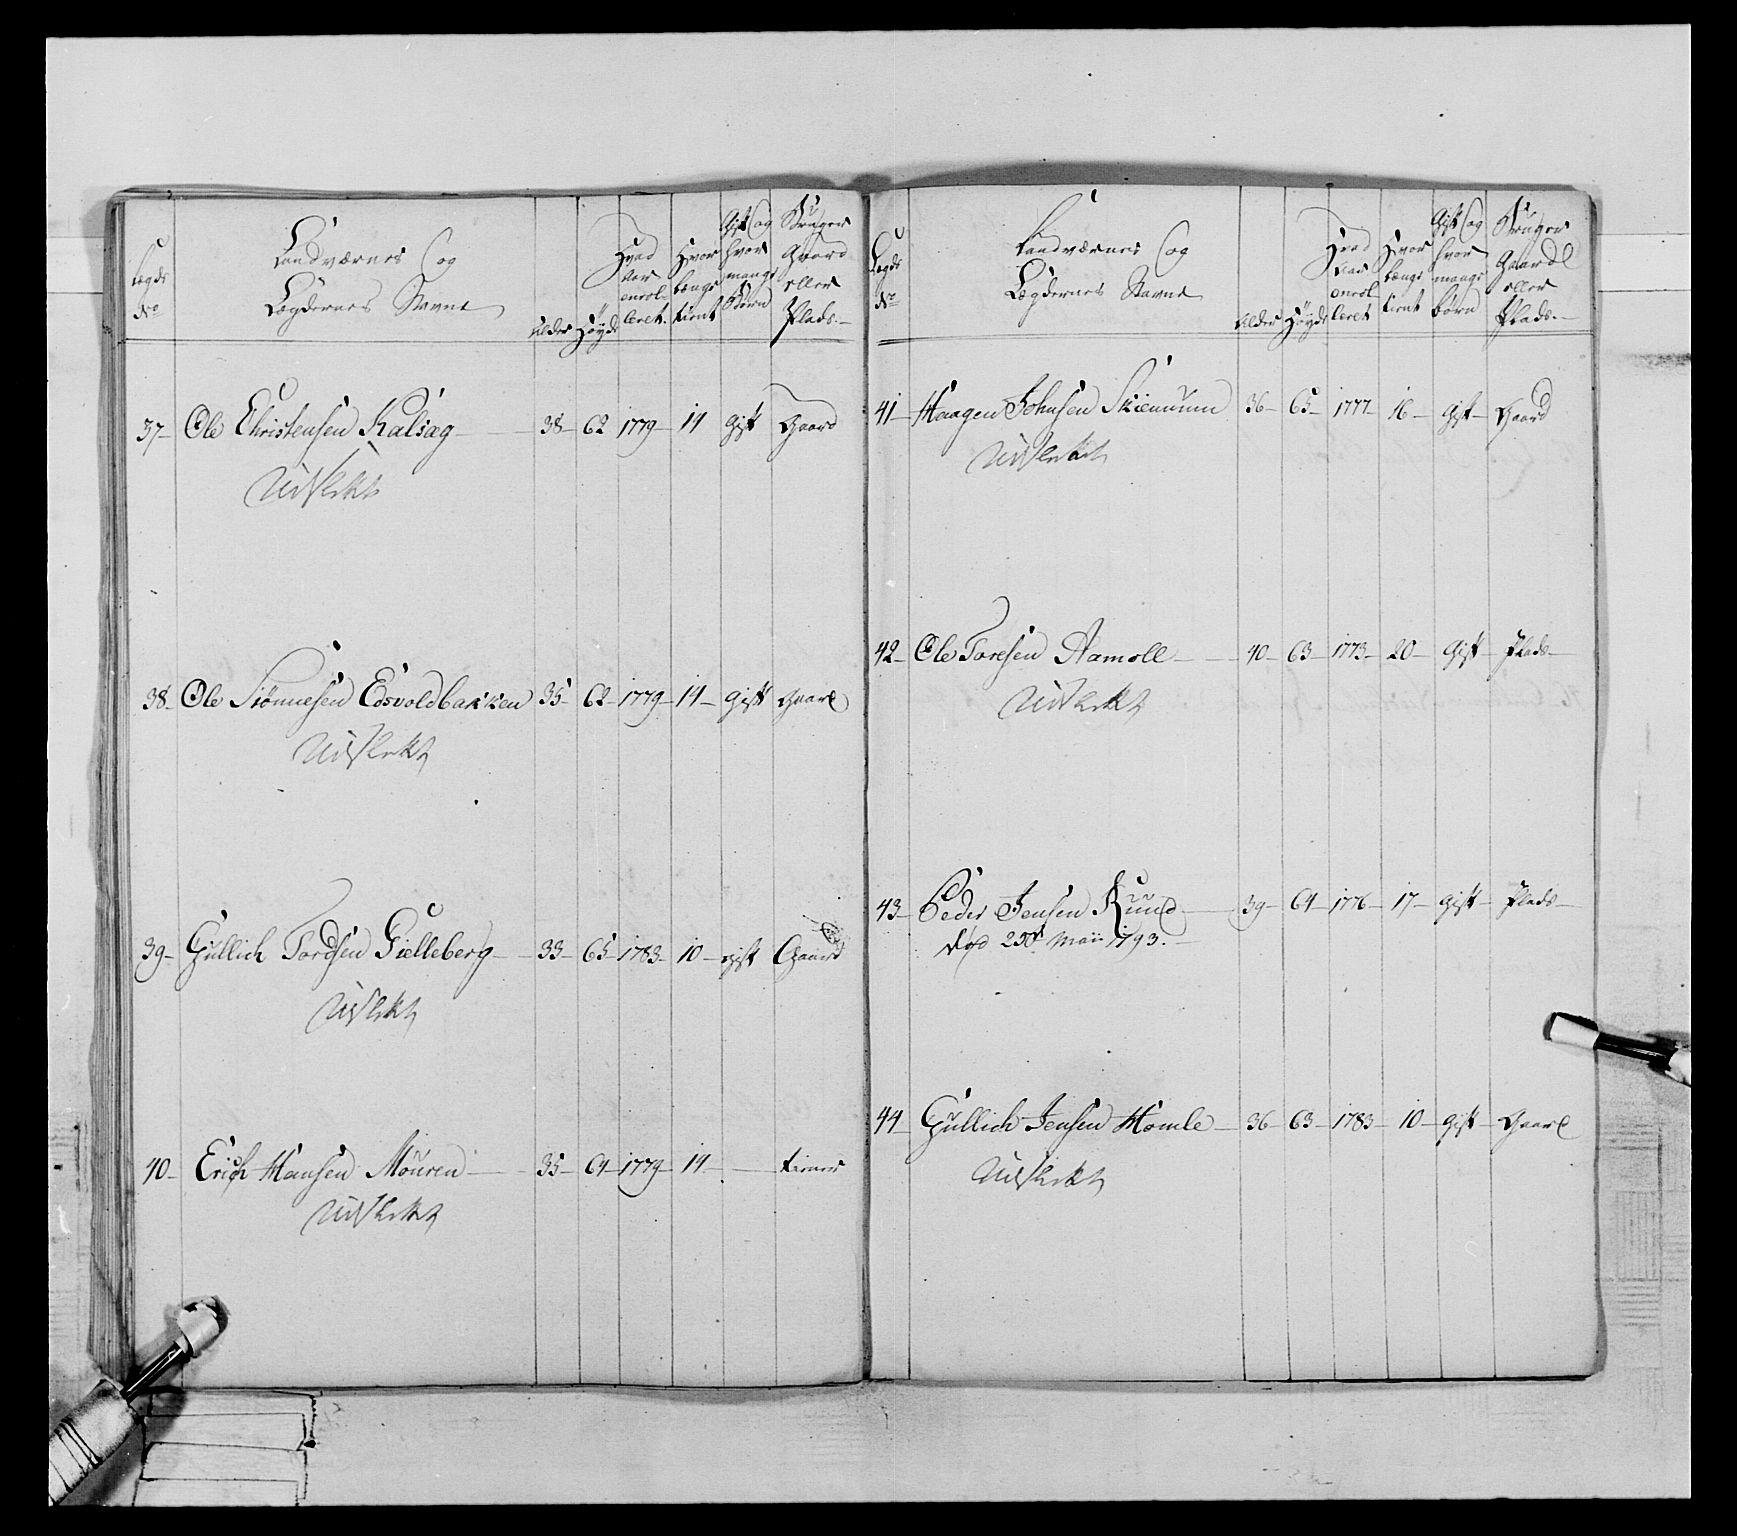 Lægds No
Landværnes og Lægdernes Navne
Alder
Høyde
Hvad Aar enrolleret
Hvor længe tient
Gift og hvor mange Børn
Bruger Gaard eller Plads
37 Ole Christensen Kalsæg 38 62 1779 14 Gift Gaard
Udslekt
38 Ole Siønnesen Edsvoldbakken 35 62 1779 14 gift Gaard
Udslekt
39 Gullich Tordsen Gielleberg 33 65 1783 10 gift Gaard
Udslekt
40 Erich Hansen Mouren 35 61 1779 14 tiener
Udslekt
Lægds No
Landværnes og Lægdernes Navne
Alder
Høyde
Hvad Aar enrolleret
Hvor længe tient
Gift og hvor mange børn
Bruger Gaard eller Plads
41 Haagen Johnsen 36 65 1777 16 gift Gaard
Udslekt
42 Ole Toresen Aamoll 40 63 1773 20 Gift Plads
Udslekt
43 Peder Jensen Ruud 39 61 1776 17 gift Plads
død 25d Maii 1793.
44 Gullich Jensen Homle 36 63 1783 10 gift Gaard
Udslekt